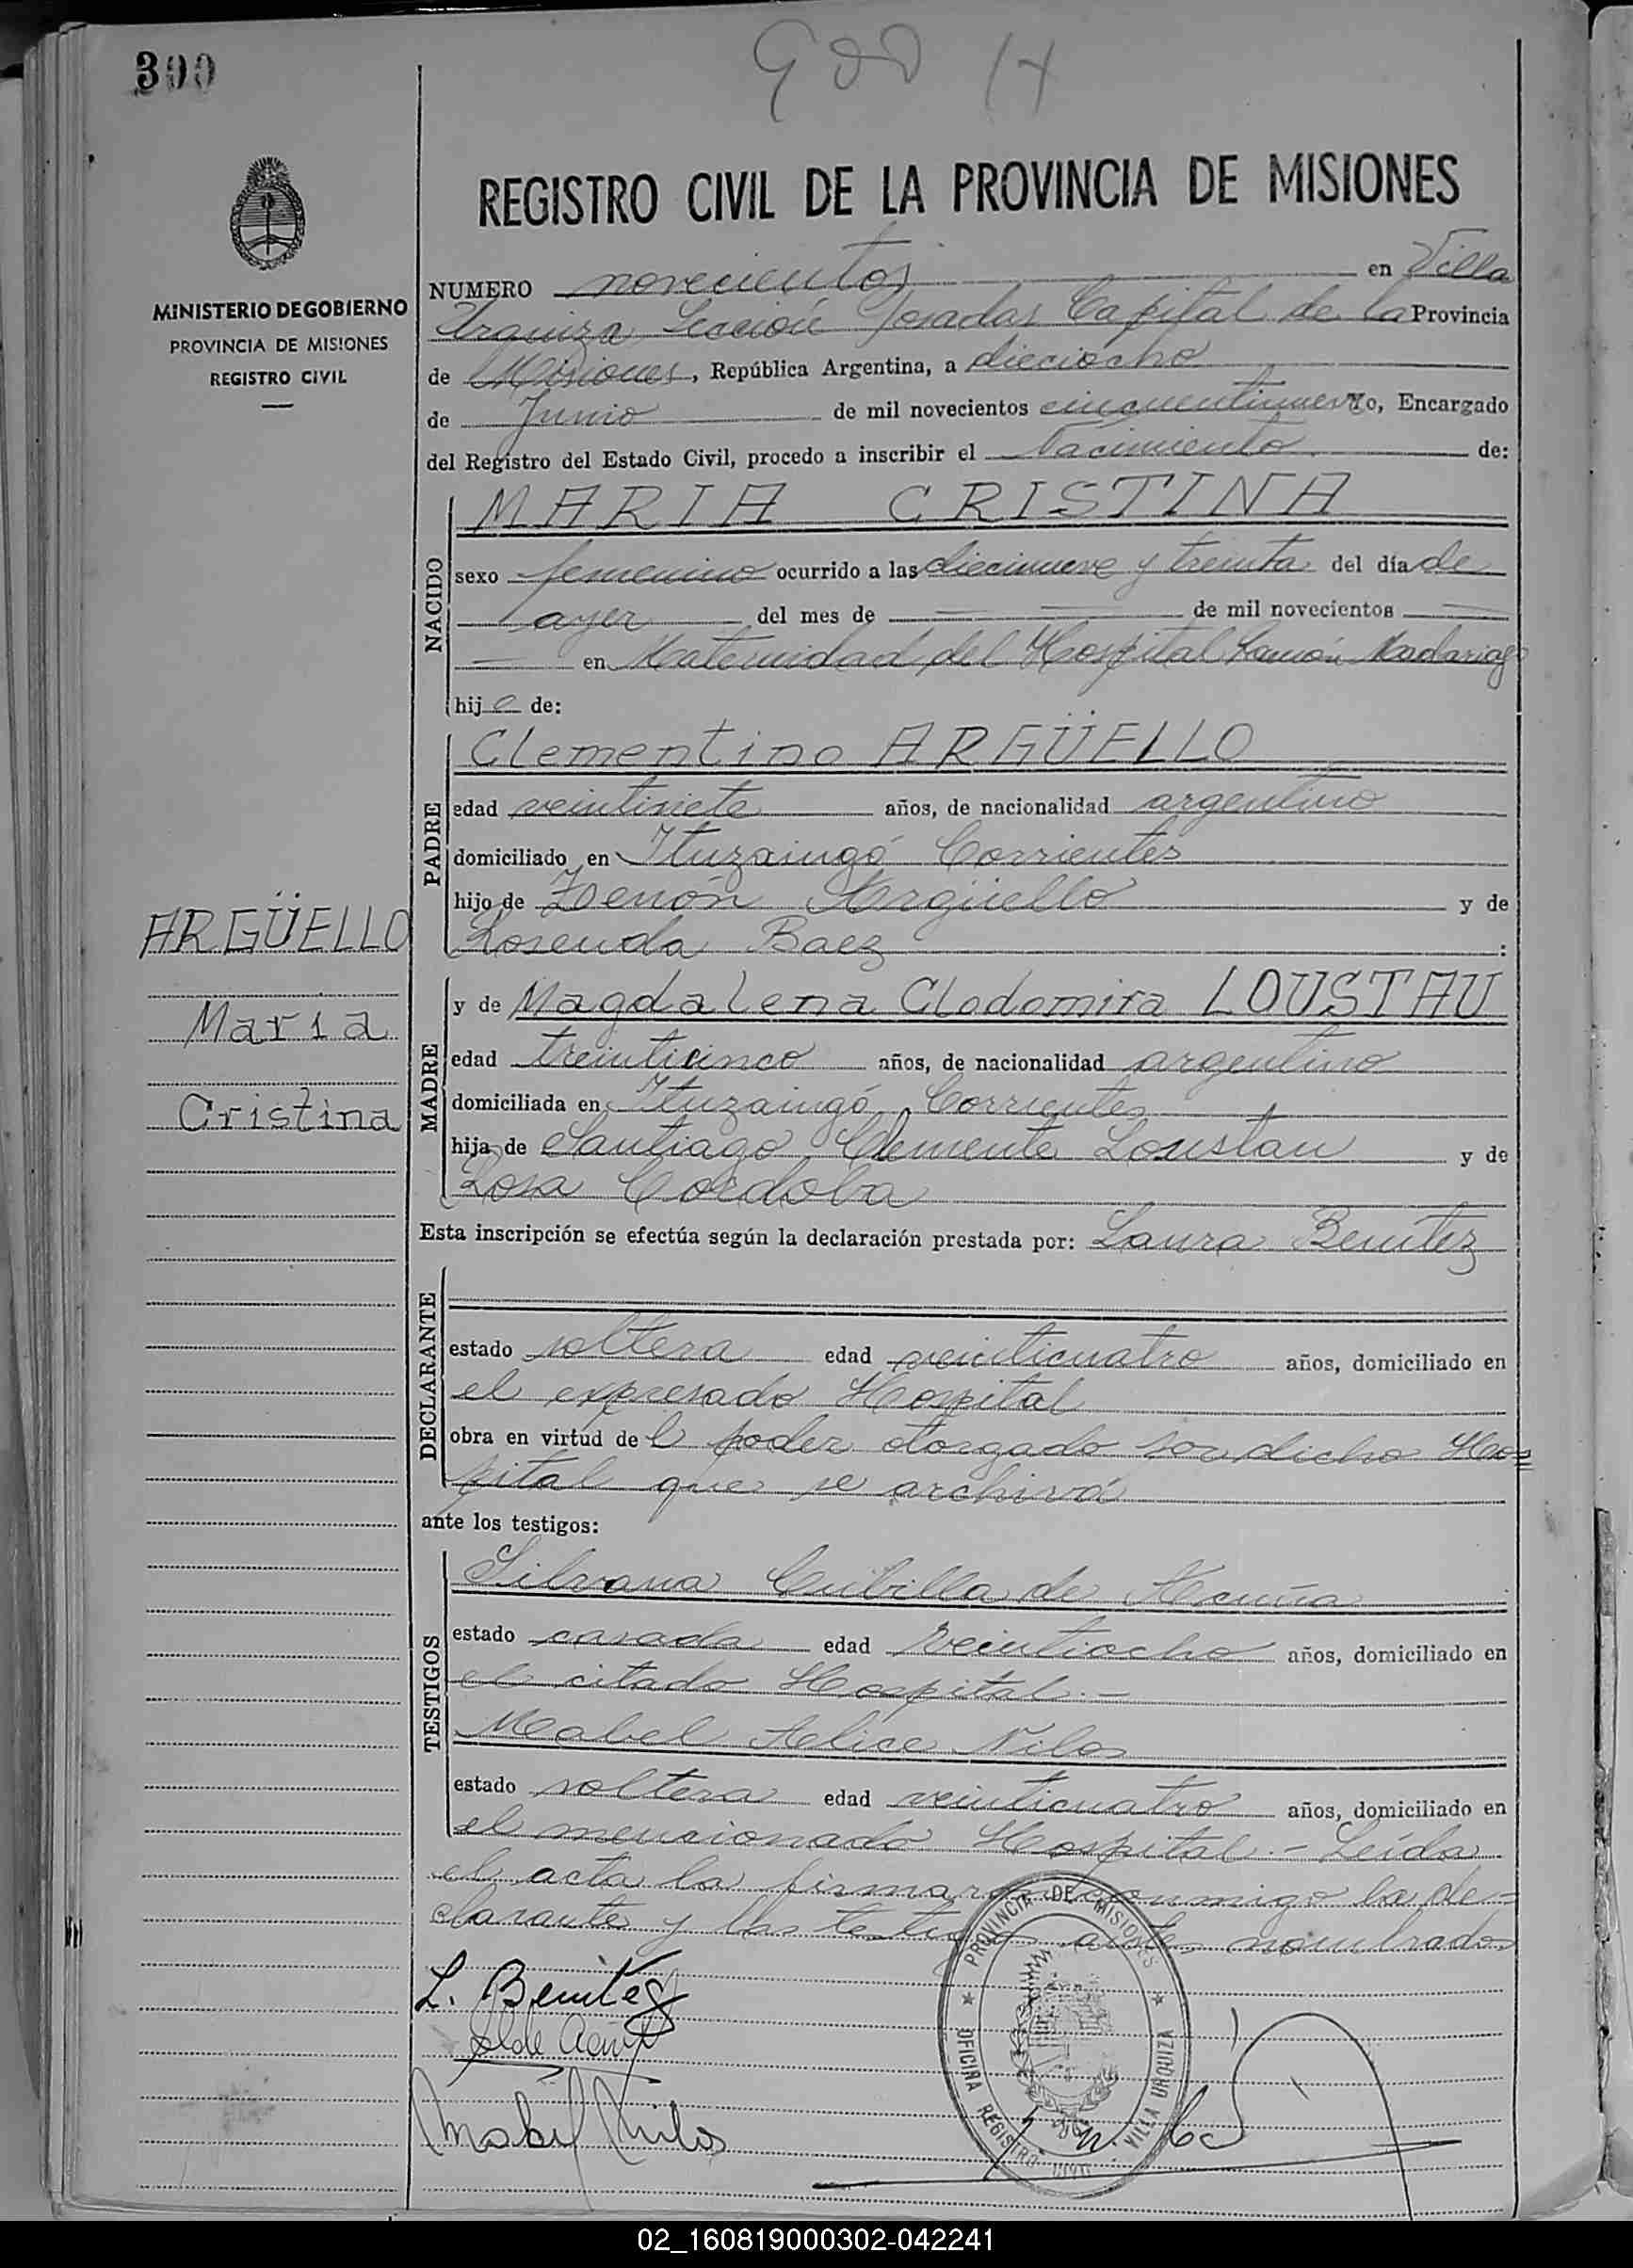 300
900 14
REGISTRO CIVIL DE LA PROVINCIA DE MISIONES
MINISTERIO DE GOBIERNO
PROVINCIA DE MISIONES
REGISTRO CIVIL
NUMERO novecientos en Villa
Urquiza Sección Posadas Capital de la Provincia
de Misiones, República Argentina, a dieciocho
de Junio de mil novecientos cincuentinueve Yo, Encargado
del Registro del Estado Civil, procedo a inscribir el Nacimiento de:
NACIDO
MARIA CRISTINA
sexo femenino ocurrido a las diecinueve y treinta del día de
ayer del mes de — — de mil novecientos —
— en Maternidad del Hospital Ramón Madariaga
hija de:
PADRE
Clementino ARGÜELLO
edad veintisiete años, de nacionalidad argentino
domiciliado en Ituzaingó Corrientes
hijo de Zenón Argüello y de
Rosenda Baez :
ARGÜELLO
Maria
Cristina
MADRE
y de Magdalena Clodomira LOUSTAU
edad treinticinco años, de nacionalidad argentino
domiciliada en Ituzaingó Corrientes
hija de Santiago Clemente Loustau y de
Rosa Cordoba
Esta inscripción se efectúa según la declaración prestada por: Laura Benitez
DECLARANTE
estado soltera edad veinticuatro años, domiciliado en
el expresado Hospital
obra en virtud de l poder otorgado por dicho Hos=
pital que se archivá
ante los testigos:
TESTIGOS
Silvana Cubilla de Acuña
estado casada edad veintiocho años, domiciliado en
el citado Hospital.—
Mabel Alice Nilos
estado soltera edad veinticuatro años, domiciliado en
el mencionado Hospital.— Leída
el acta la firmaron conmigo la de=
clarante y los testigos antes nombrados
L. Benítez
S. de Acuña
Mabel Nilos
PROVINCIA DE MISIONES
OFICINA REGISTRO CIVIL VILLA URQUIZA
02_160819000302-042241